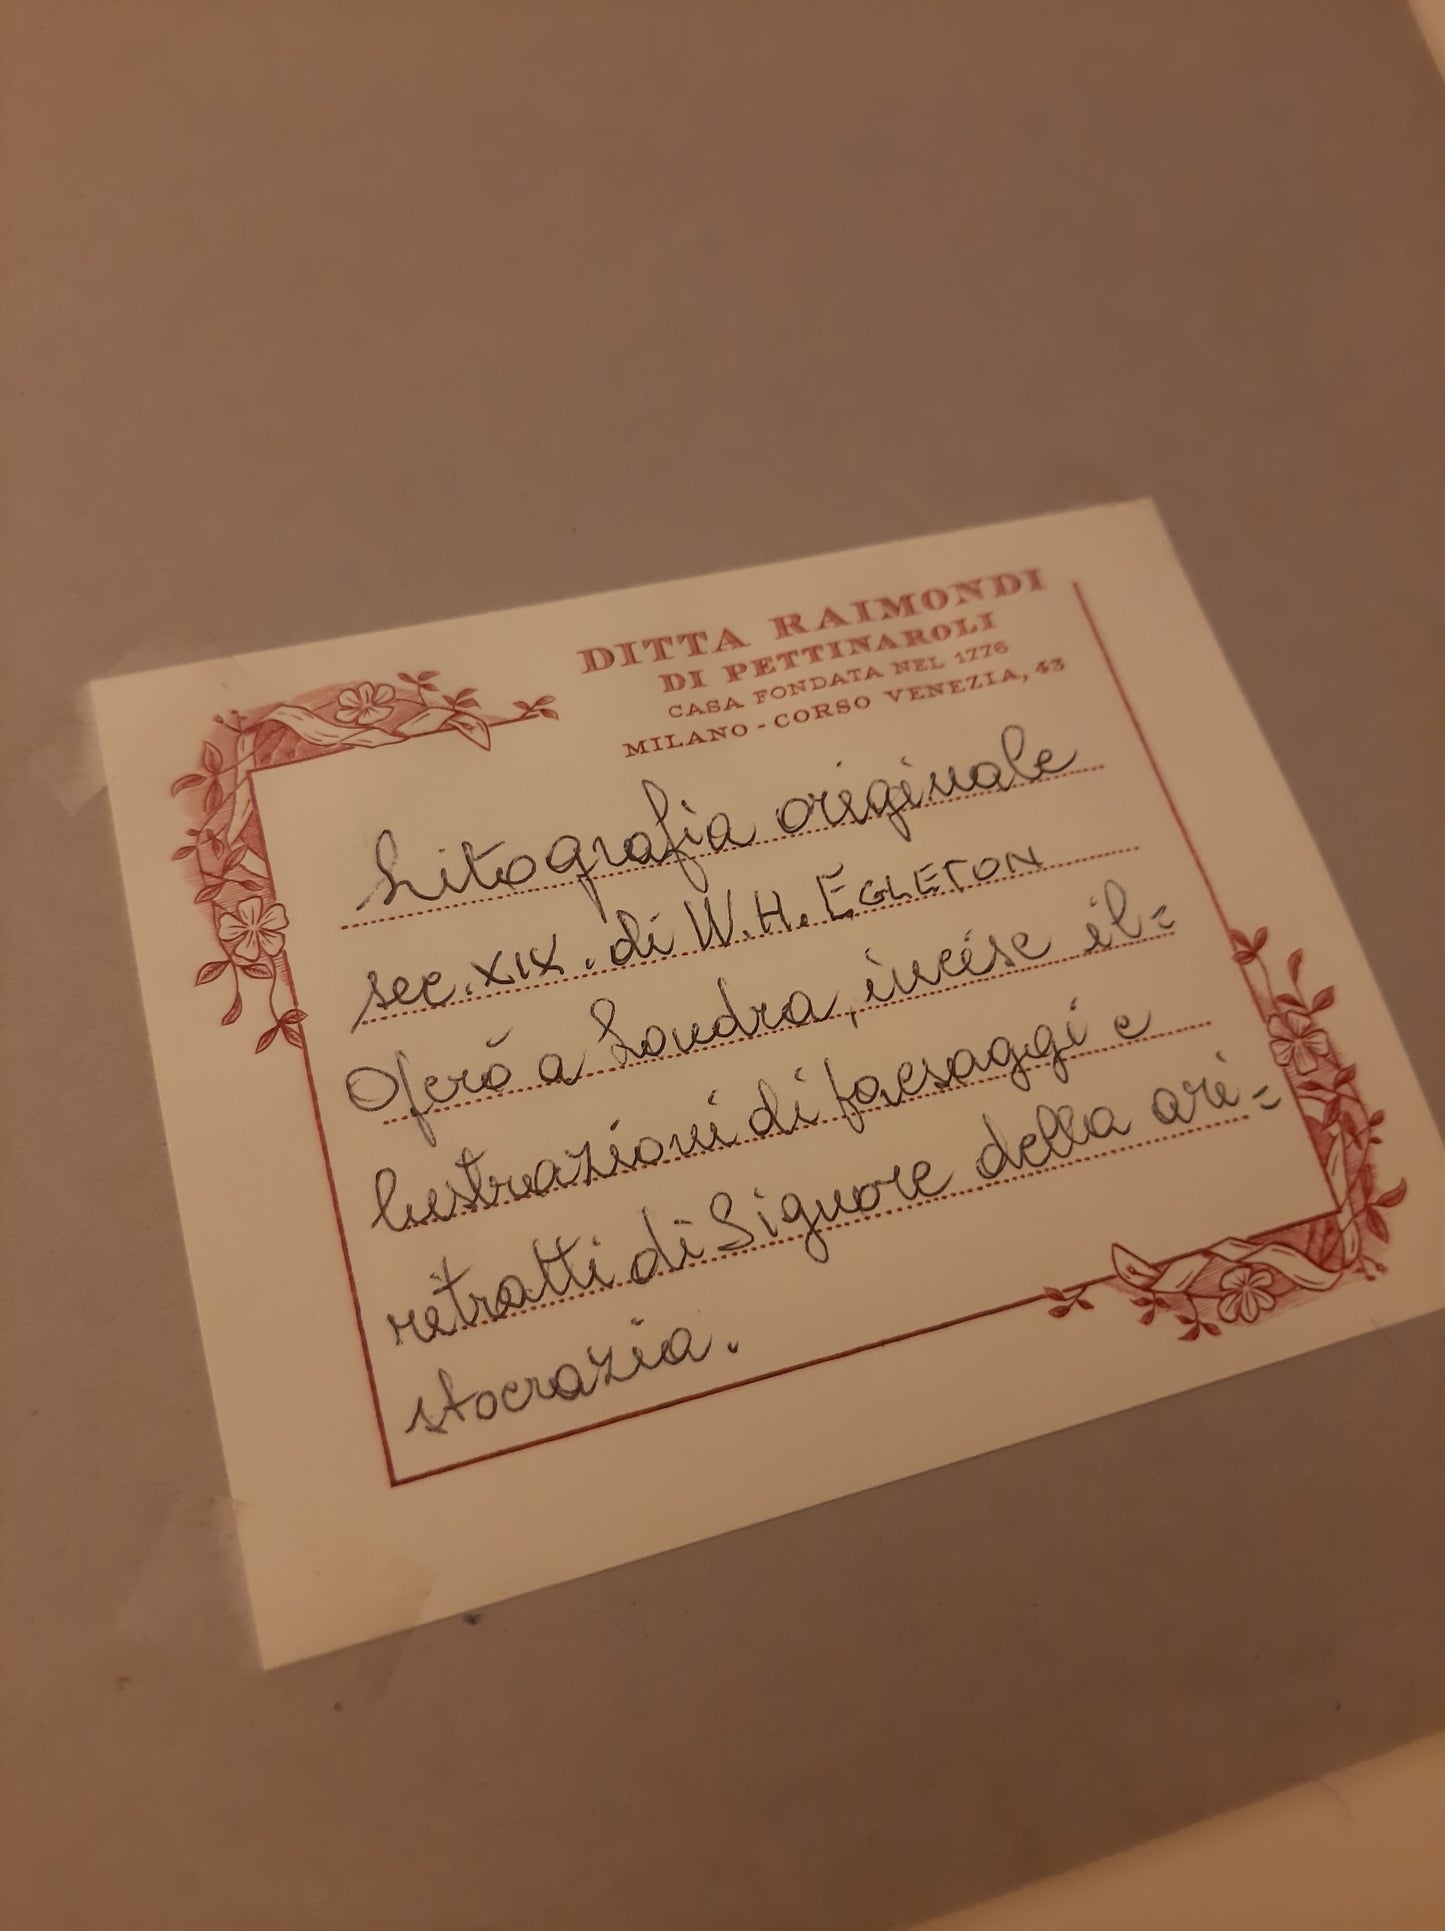 DITTA RAIMONDI
DI PETTINAROLI
CASA FONDATA NEL 1776
MILANO - CORSO VENEZIA, 43
Litografia originale
sec. XIX. di W. H. EGLETON
Operò a Londra, incise il=
lustrazioni di paesaggi e
ritratti di Signore della ari=
stocrazia.